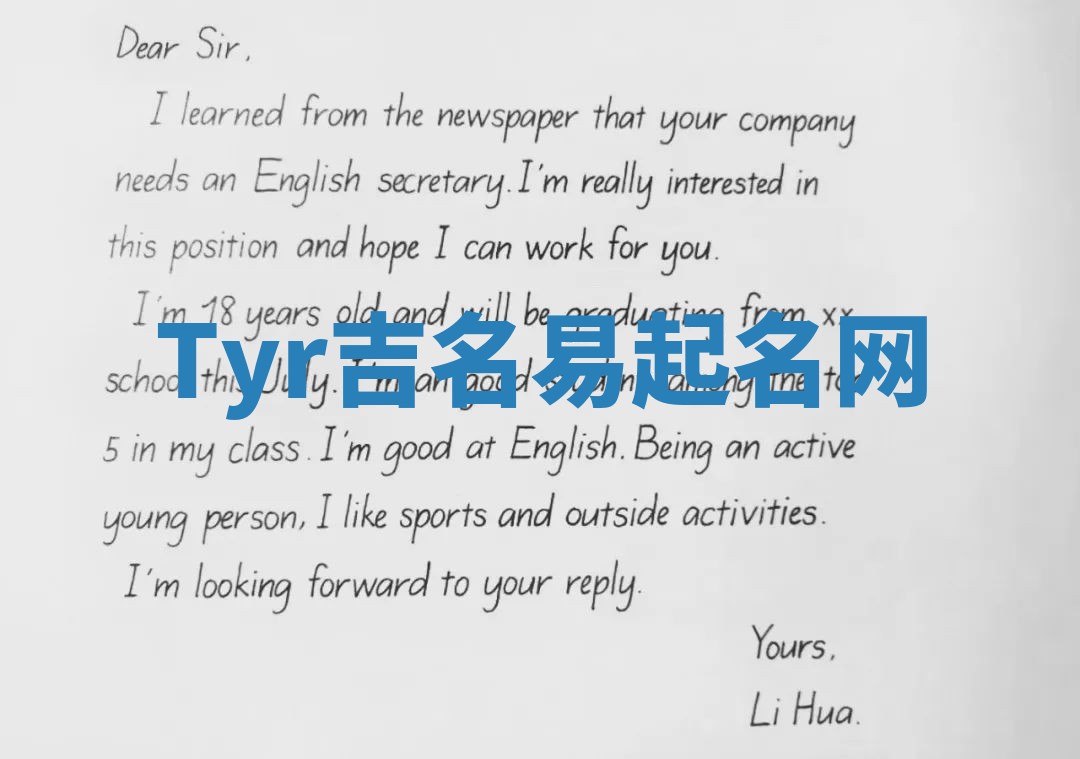 Dear Sir,
I learned from the newspaper that your company
needs an English secretary. I'm really interested in
this position and hope I can work for you.
I'm 18 years old and will be graduating from xx
school this July. I'm a good student among the top
Tyr吉名易起名网
5 in my class. I'm good at English. Being an active
young person, I like sports and outside activities.
I'm looking forward to your reply.
Yours,
Li Hua.